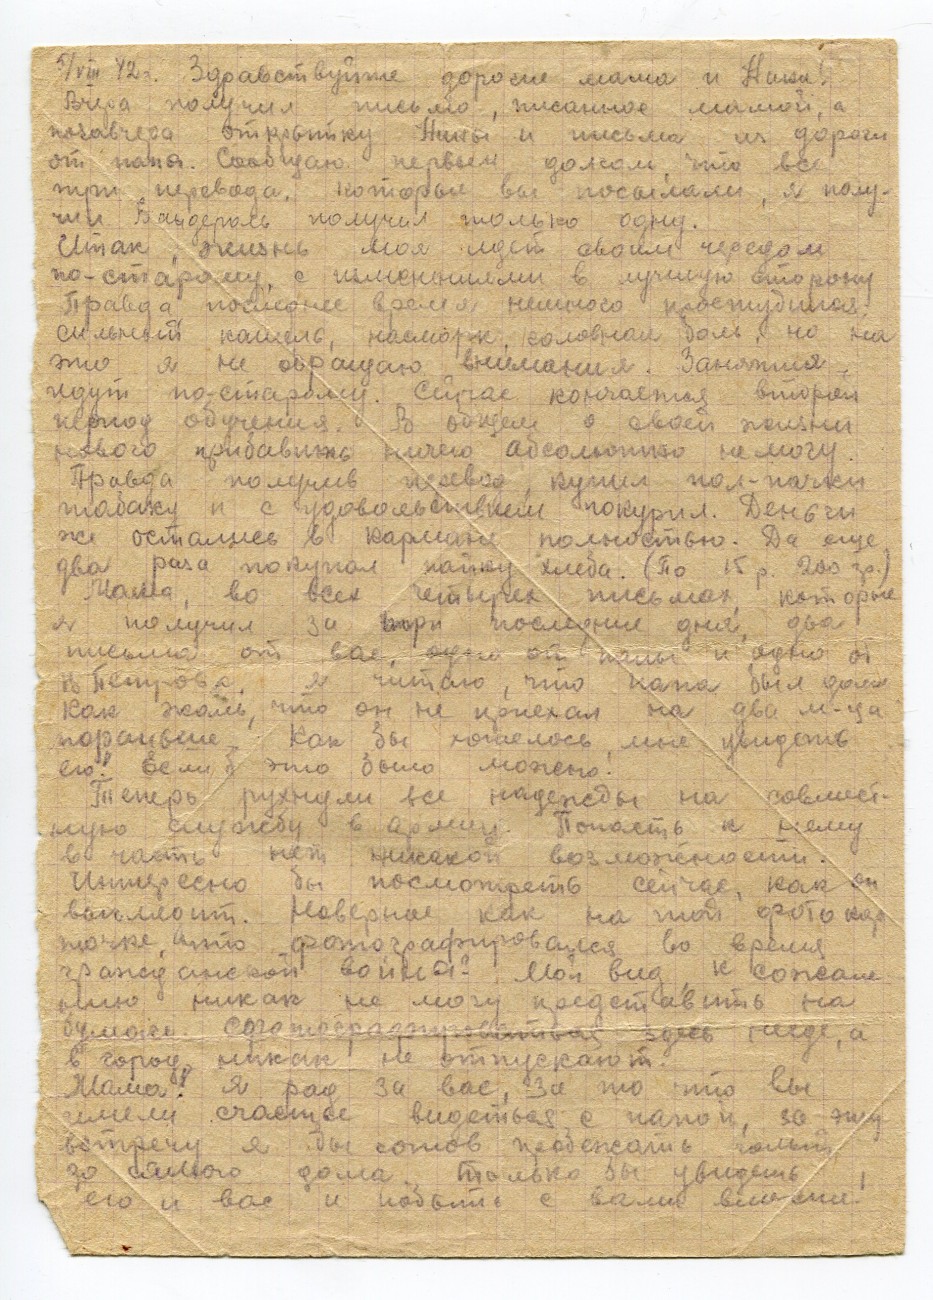 5/VIII 42 г. Здравствуйте дорогие мама и Нина!
Вчера получил письмо, писанное мамой, а
позавчера открытку Нины и письма из дороги
от папы. Сообщаю первым долгом, что все
три перевода, которые вы посылали, я полу-
чил Бандероль получил только одну.
Итак, жизнь моя идет своим чередом
по-старому, с изменениями в лучшую сторону
Правда последнее время немного простудился,
сильный кашель, насморк, головная боль, но на
это я не обращаю внимания. Занятия
идут по-старому. Сейчас кончается второй
период обучения. В общем о своей жизни
нового прибавить ничего абсолютно не могу.
Правда получив перевод, купил пол-пачки
табаку и с удовольствием покурил. Деньги
же остались в кармане полностью. Да еще
два раза покупал пайку хлеба. (По 15 р. 200 гр.)
Мама, во всех четырех письмах, которые
я получил за три последние дня, два
письма от вас, одно от папы и одно от
Петрова, я читаю, что папа был дома
Как жаль, что он не приехал на два м-ца
пораньше. Как бы хотелось мне увидеть
его! Если б это было можно!
Теперь рухнули все надежды на совмест-
ную службу в армии. Попасть к нему
в часть нет никакой возможности.
Интересно бы посмотреть сейчас, как он
выглядит. Наверное как на той фотокар
точке, что фотографировался во время
гражданской войны? Мой вид, к сожале-
нию никак не могу представить на
бумаге. Сфотографироваться здесь негде, а
в город никак не отпускают.
Мама! Я рад за вас, за то что вы
имели счастье видеться с папой, за эту
встречу я бы готов пробежать
до самого дома. Только бы увидеть
его и вас и побыть с вами вместе!